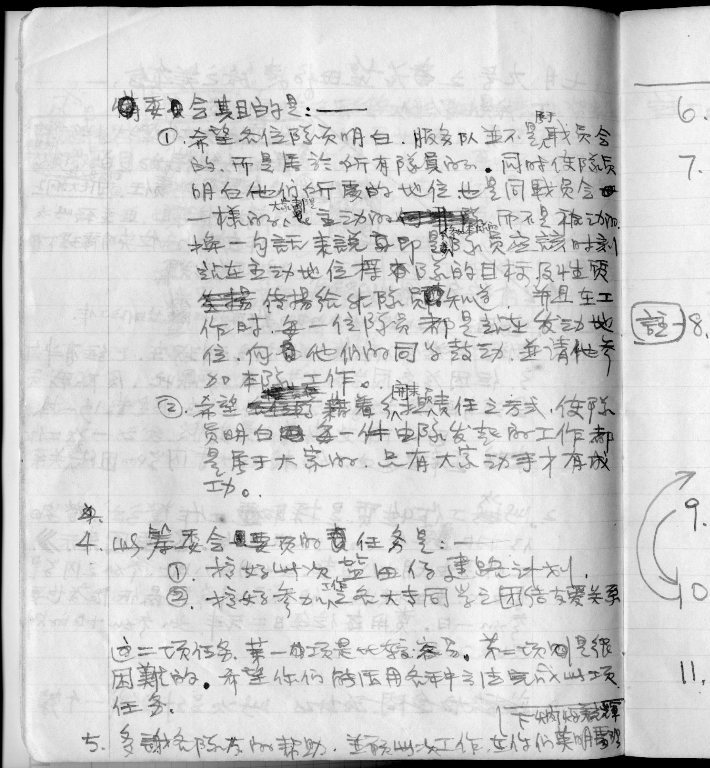 籌委會其目的是：——
① 希望各位隊员明白，服务队並不是属于職员会
的，而是属於所有隊員的。同时使隊员
明白他们所處的地位也是同職员会
一樣的，主动的，而不是被动的。
換一句話來說，即隊员应該时刻
站在主动地位，把本隊的目标及性质
傳揚給非隊员知道，並且在工
作时，每一位隊员都是站在发动地
位，向他们的同学鼓动，並請他参
加本隊工作。
② 希望藉着分担責任之方式，使隊
员明白每一件由隊发起的工作都
是属于大家的，只有大家动手才有成
功。
4. 此籌委会要项的責任务是：—
①. 搞好此次蓝田仔建路计划.
②. 搞好参加工作各大专同学之团结友爱关系
这二项任务，第一项是比較容易，第二项则是很
困難的。希望你们能运用各种方法完成此项
任务.
5. 多謝各隊友的帮助，並願此次工作，在你们英明
6.
7.
註 8.
9.
10
11.